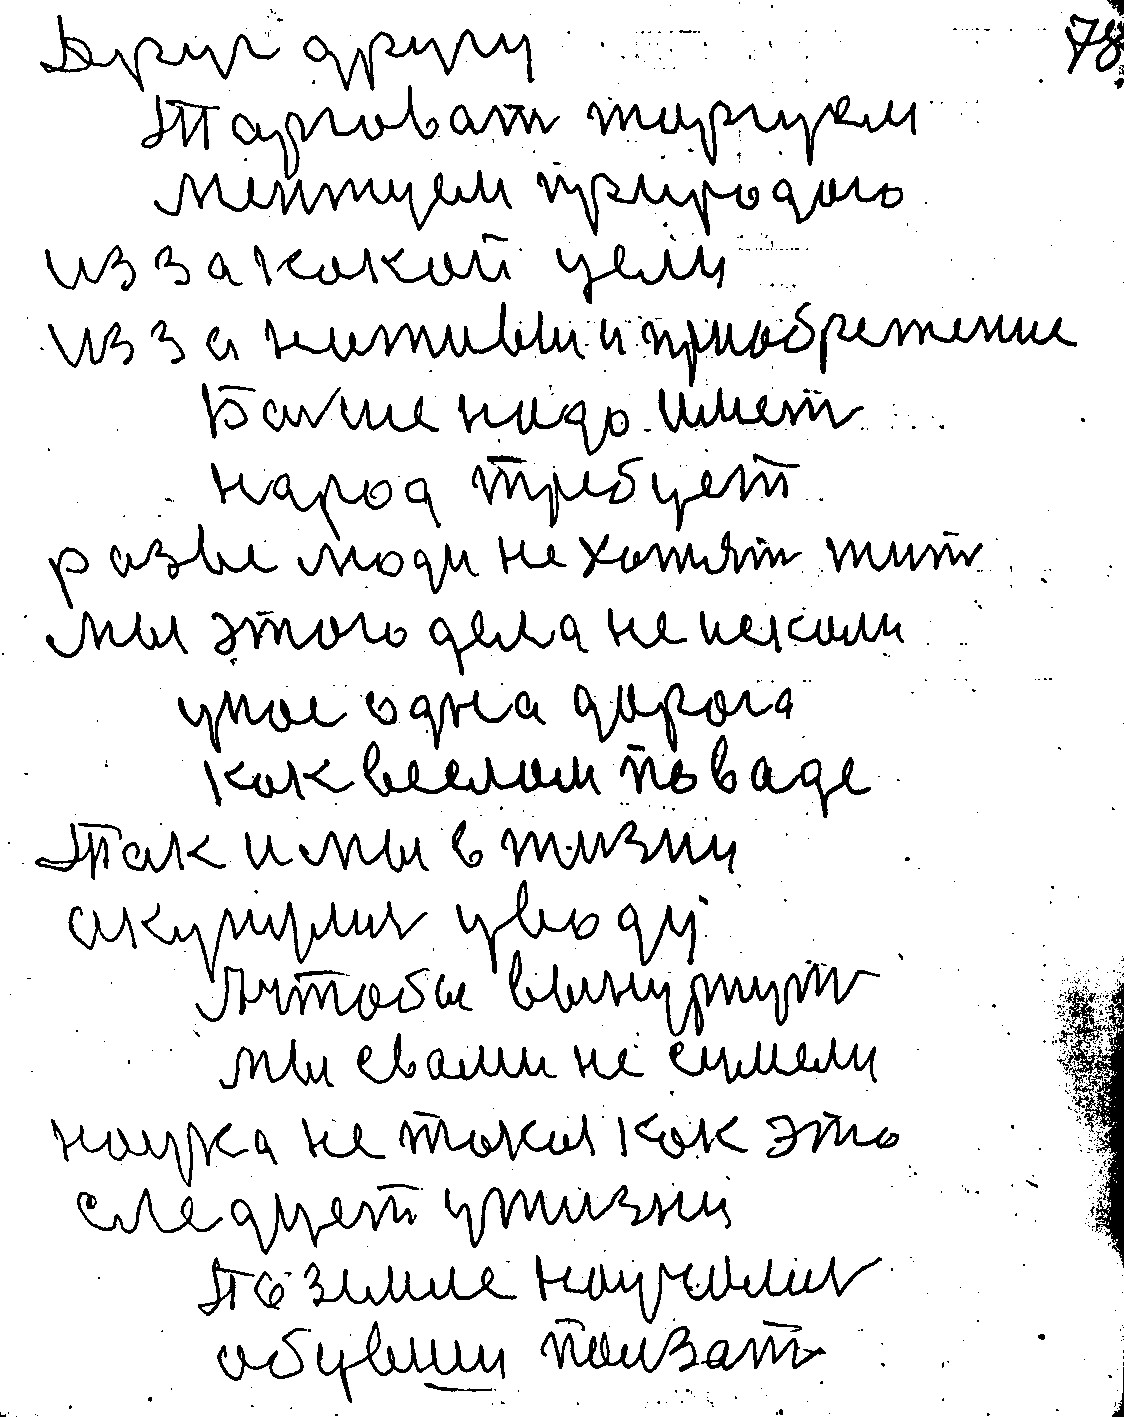 78
Друг другу
Тарговат таргуем
Мептуем природою
из за какой цели
из за наживы и приобрежение
Бальше надо имет
народ требует
разве люди не хотят жит
мы этого дела не искали
унас одна дорога
как веслом по ваде
Так и мы в жизни
акунулис уводу
А чтобы вынурнут
мы свами не сумели
наука не такая как это
следует ужизни
По земле научилис
обувши ползат